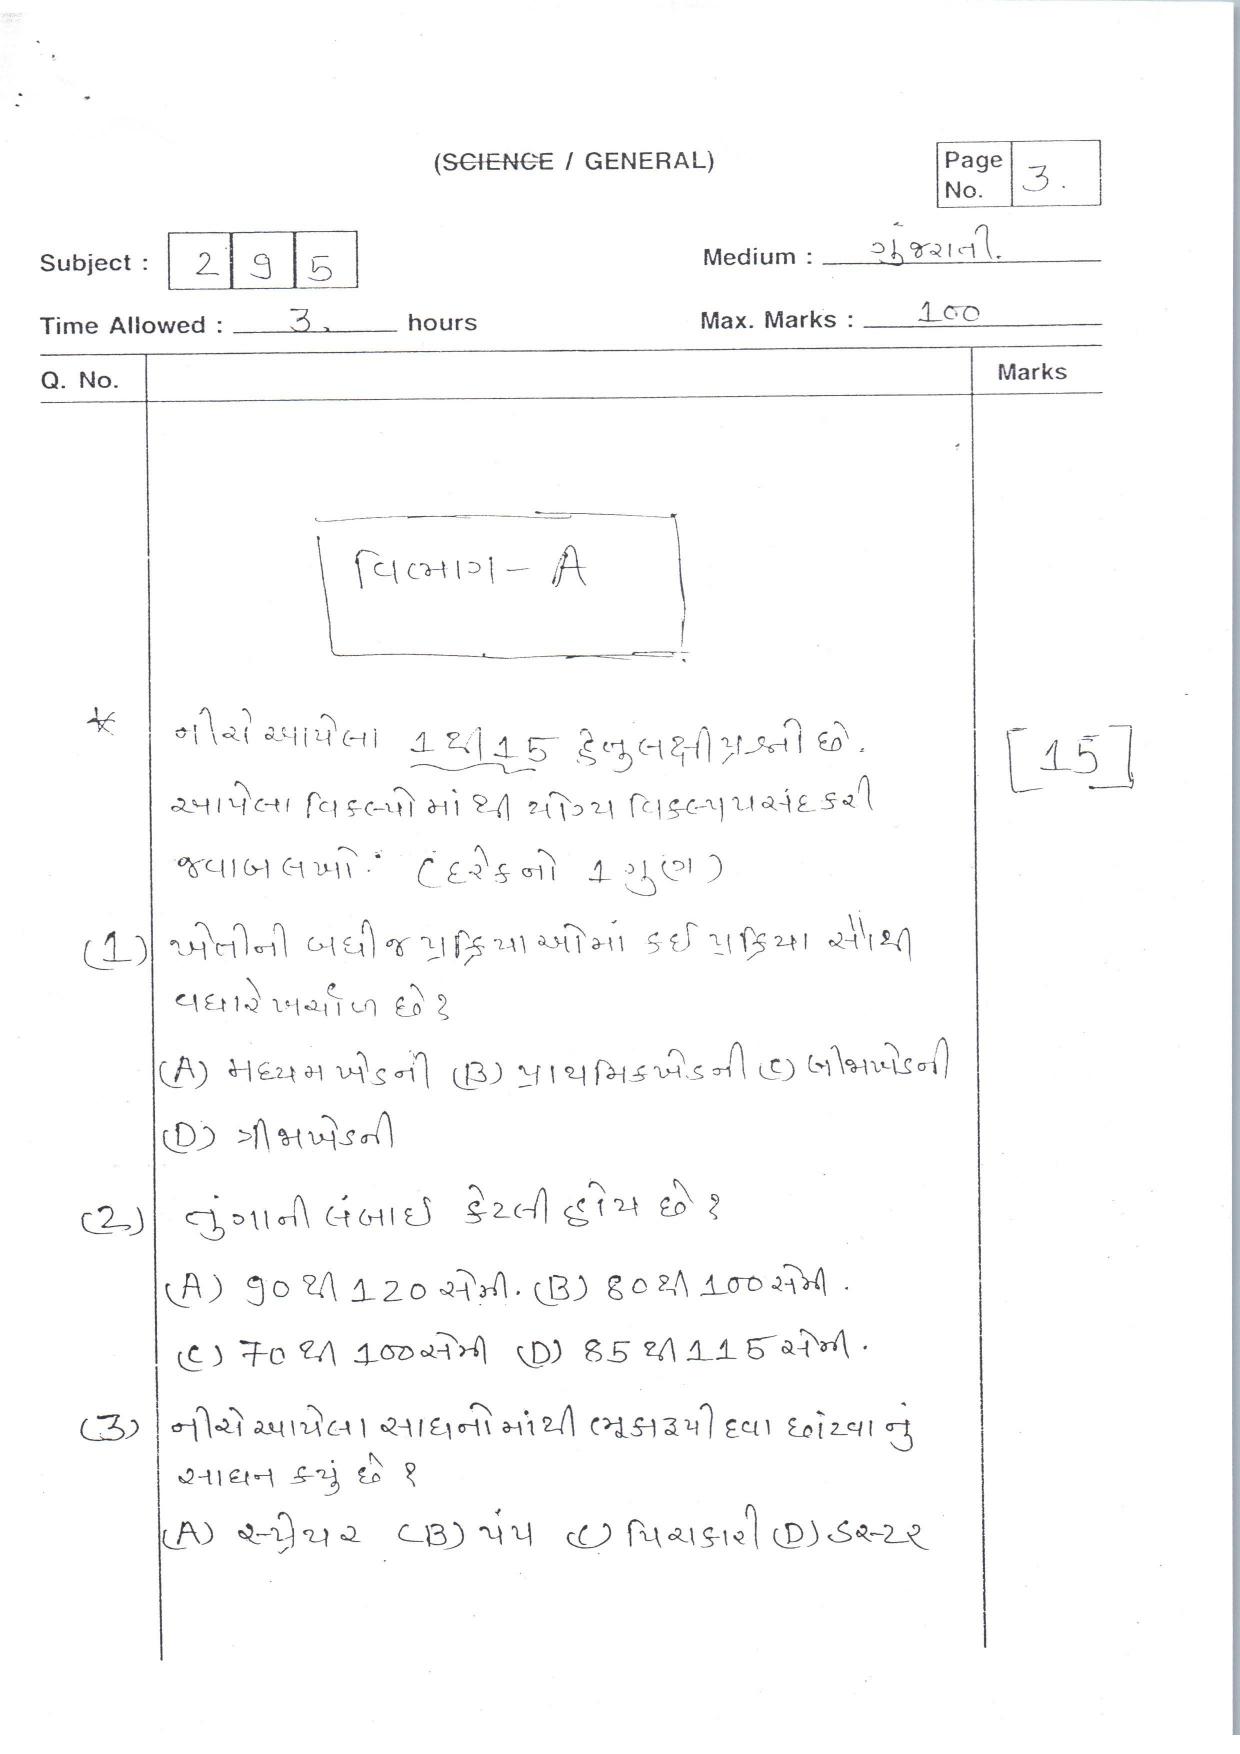 (SCIENCE / GENERAL)
Page No. 3.
Subject : 2 9 5
Medium : ગુંજરાતી.
Time Allowed : 3. hours
Max. Marks : 100
Q. No.
Marks
વિભાગ - A
* નીચે આપેલા 1 થી 15 હેતુલક્ષી પ્રશ્નો છે. [15]
આપેલા વિકલ્પોમાંથી યોગ્ય વિકલ્પ પસંદ કરી
જવાબ લખો : (દરેકનો 1 ગુણ)
(1) ખેતીની બધી જ પ્રક્રિયાઓમાં કઈ પ્રક્રિયા સૌથી
વધારે ખર્ચાળ છે ?
(A) મધ્યમખેડની (B) પ્રાથમિકખેડની (C) બીજખેડની
(D) ત્રીજખેડની
(2) નુંગાની લંબાઈ કેટલી હોય છે ?
(A) 90 થી 120 સેમી. (B) 80 થી 100 સેમી.
(C) 70 થી 100 સેમી (D) 85 થી 115 સેમી.
(3) નીચે આપેલા સાધનોમાંથી ભૂકારૂપી દવા છાંટવાનું
સાધન કયું છે ?
(A) સ્પ્રેયર (B) પંપ (C) પિચકારી (D) ડસ્ટર